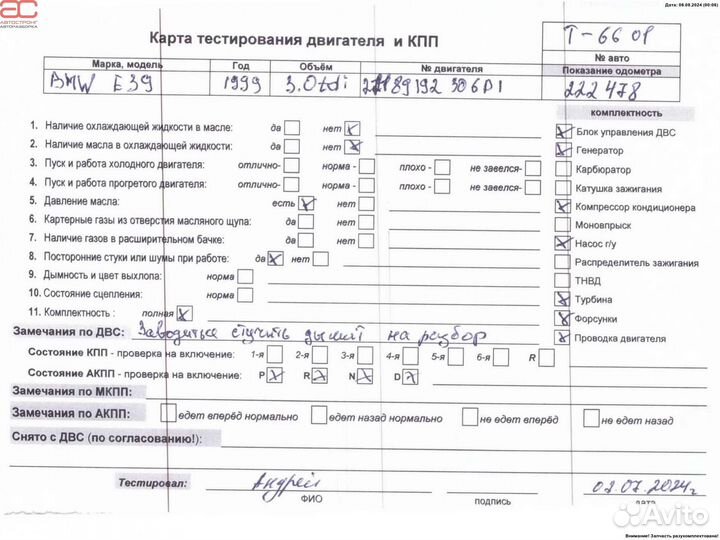 Дата: 06.08.2024 (00:00)
АС
АВТОСТРОНГ
АВТОРАЗБОРКА
Карта тестирования двигателя и КПП
Т-6601
№ авто
Марка, модель Год Объём № двигателя Показание одометра
BMW E39 1999 3.0tdi 306D1 222478
комплектность
1. Наличие охлаждающей жидкости в масле: да нет
2. Наличие масла в охлаждающей жидкости: да нет
3. Пуск и работа холодного двигателя: отлично- норма - плохо - не завелся-
4. Пуск и работа прогретого двигателя: отлично- норма - плохо - не завелся-
5. Давление масла: есть нет
6. Картерные газы из отверстия масляного щупа: да нет
7. Наличие газов в расширительном бачке: да нет
8. Посторонние стуки или шумы при работе: да нет
9. Дымность и цвет выхлопа: норма
10. Состояние сцепления: норма
11. Комплектность : полная
Блок управления ДВС
Генератор
Карбюратор
Катушка зажигания
Компрессор кондиционера
Моновпрыск
Насос г/у
Распределитель зажигания
ТНВД
Турбина
Форсунки
Проводка двигателя
Замечания по ДВС: Заводиться стучить дымит на разбор
Состояние КПП - проверка на включение: 1-я 2-я 3-я 4-я 5-я 6-я R
Состояние АКПП - проверка на включение: P R N D
Замечания по МКПП:
Замечания по АКПП: едет вперёд нормально едет назад нормально не едет вперёд не едет назад
Снято с ДВС (по согласованию!):
Тестировал: Андрей 02.07.2024г
ФИО подпись дата
Avito
Внимание! Запчасть разукомплектована!